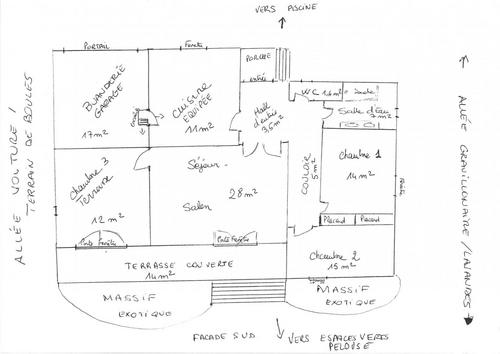 VERS PISCINE
PORTAIL
Fenêtre
PORCHE
entrée
BUANDERIE
GARAGE
17 m²
CUISINE
EQUIPÉE
11 m²
Hall
d'entrée
WC
Douche
Salle d'Eau
7 m²
COULOIR
5 m²
Chambre 1
14 m²
Placard
Placard
Chambre 3
Terrasse
12 m²
Séjour
Salon
28 m²
Porte Fenêtre
Porte Fenêtre
Chambre 2
15 m²
TERRASSE COUVERTE
14 m²
MASSIF
EXOTIQUE
MASSIF
EXOTIQUE
FACADE SUD
VERS ESPACES VERTS
PELOUSE
ALLÉE VOITURE /
TERRAIN DE BOULES
ALLÉE GRAVILLONAIRE / LAVANDES